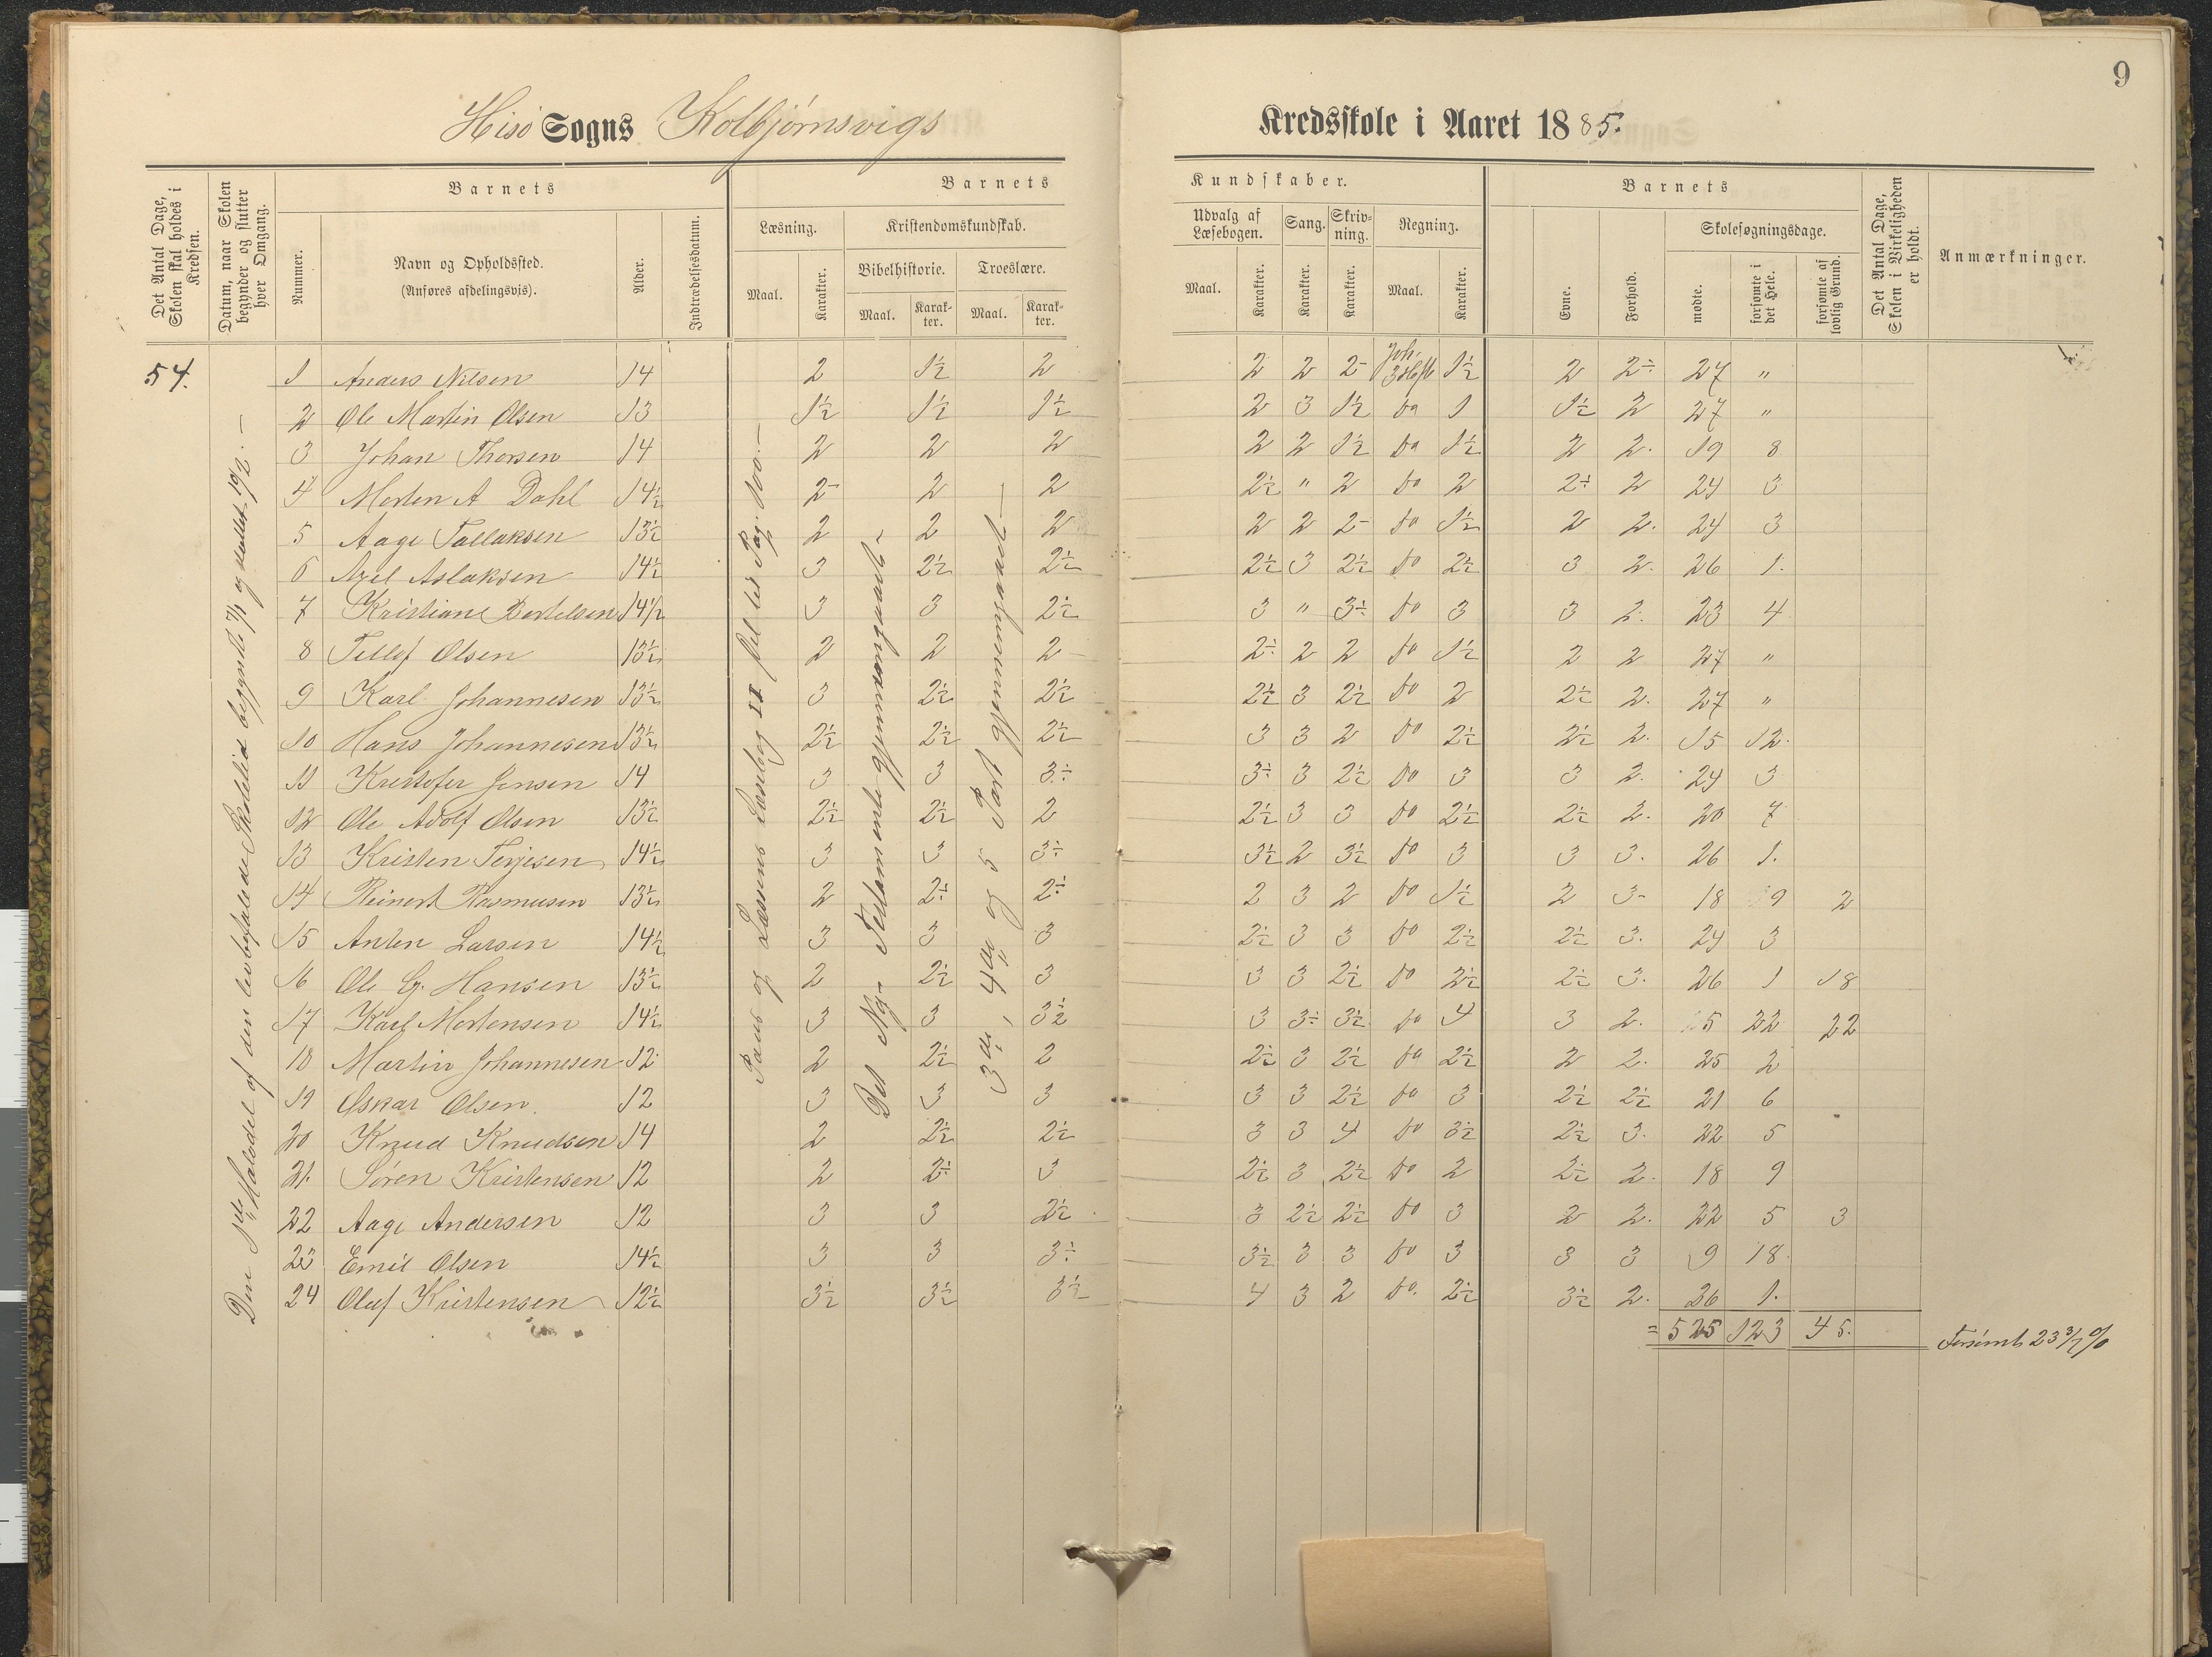 9
Hisö Sogns Kolbjörnsvigs Kredsskole i Aaret 1885.
Det Antal Dage, Skolen skal holdes i Kredsen.
Datum, naar Skolen begynder og slutter hver Omgang.
Barnets
Nummer.
Navn og Opholdssted.
(Anføres afdelingsvis).
Alder.
Indtrædelsesdatum.
Barnets Kundskaber.
Læsning.
Maal.
Karakter.
Kristendomskundskab.
Bibelhistorie.
Maal.
Karakter.
Troeslære.
Maal.
Karakter.
Udvalg af Læsebogen.
Maal.
Karakter.
Sang.
Karakter.
Skrivning.
Karakter.
Regning.
Maal.
Karakter.
Barnets
Evne.
Forhold.
Skolesøgningsdage.
mødte.
forsømte i det Hele.
forsømte af lovlig Grund.
Det Antal Dage, Skolen i Virkeligheden er holdt.
Anmærkninger.
54.
Den 1ste Halvdel af den lovbefalede Skoletid begyndte 7/1 og sluttet 19/2. —
Paus og Lassens Læsebog II Del til Pag. 100. —
Det Nye Testamente gjennemgaaet —
3die, 4de og 5 Part gjennemgaaet —
1 Anders Nilsen 14 2 1½ 2 2 2 2- Joh. 3 Hefte 1½ 2 2÷ 27 "
2 Ole Martin Olsen 13 1½ 1½ 1½ 2 3 1½ do 1 1½ 2 27 "
3 Johan Thorsen 14 2 2 2 2 2 1½ do 1½ 2 2. 19 8
4 Morten A Dahl 14½ 2- 2 2 2½ " 2 do 2 2÷ 2 24 3
5 Aage Tallaksen 13½ 2 2 2 2 2 2- do 1½ 2 2. 24 3
6 Axel Aslaksen 14½ 3 2½ 2½ 2½ 3 2½ do 2½ 3 2. 26 1.
7 Kristiane Bertelsen 14½ 3 3 2½ 3 " 3÷ do 3 3 2. 23 4
8 Tellef Olsen 13½ 2 2 2 2÷ 2 2 do 1½ 2 2 27 "
9 Karl Johannesen 13½ 3 2½ 2½ 2½ 3 2½ do 2 2½ 2. 27 "
10 Hans Johannesen 13½ 2½ 2½ 2½ 3 3 2 do 2½ 2½ 2. 15 12.
11 Kristofer Jensen 14 3 3 3÷ 3÷ 3 2½ do 3 3 2. 24 3
12 Ole Adolf Olsen 13½ 2½ 2½ 2 2½ 3 3 do 2½ 2½ 2. 20 7
13 Kristen Terjesen 14½ 3 3 3÷ 3½ 2 3½ do 3 3 3. 26 1.
14 Reinert Rasmusen 13½ 2 2÷ 2÷ 2 3 2 do 1½ 2 3- 18 9 2
15 Anton Larsen 14½ 3 3 3 2½ 3 3 do 2½ 2½ 3. 24 3
16 Ole G. Hansen 13½ 2 2½ 3 3 3 2½ do 2½ 2½ 3. 26 1 18
17 Karl Mortensen 14½ 3 3 3½ 3 3÷ 3½ do 4 3 2. 5 22 22
18 Martin Johannesen 12 2 2½ 2 2½ 3 2½ do 2½ 2 2. 25 2
19 Oskar Olsen. 12 3 3 3 3 3 2½ do 3 2½ 2½ 21 6
20 Knud Knudsen 14 2 2½ 2½ 3 3 4 do 3½ 2½ 3. 22 5
21. Sören Kristensen 12 2 2÷ 3 2½ 3 2½ do 2 2½ 2. 18 9
22 Aage Andersen 12 3 3 2½ 3 2½ 2½ do 3 2 2. 22 5 3
23 Emil Olsen 14½ 3 3 3÷ 3½ 3 3 do 3 3 3 9 18.
24 Oluf Kristensen 12½ 3½ 3½ 3½ 4 3 2 do. 2½ 3½ 2. 26 1.
= 525 123 45.
Forsömt 23 3/7 %